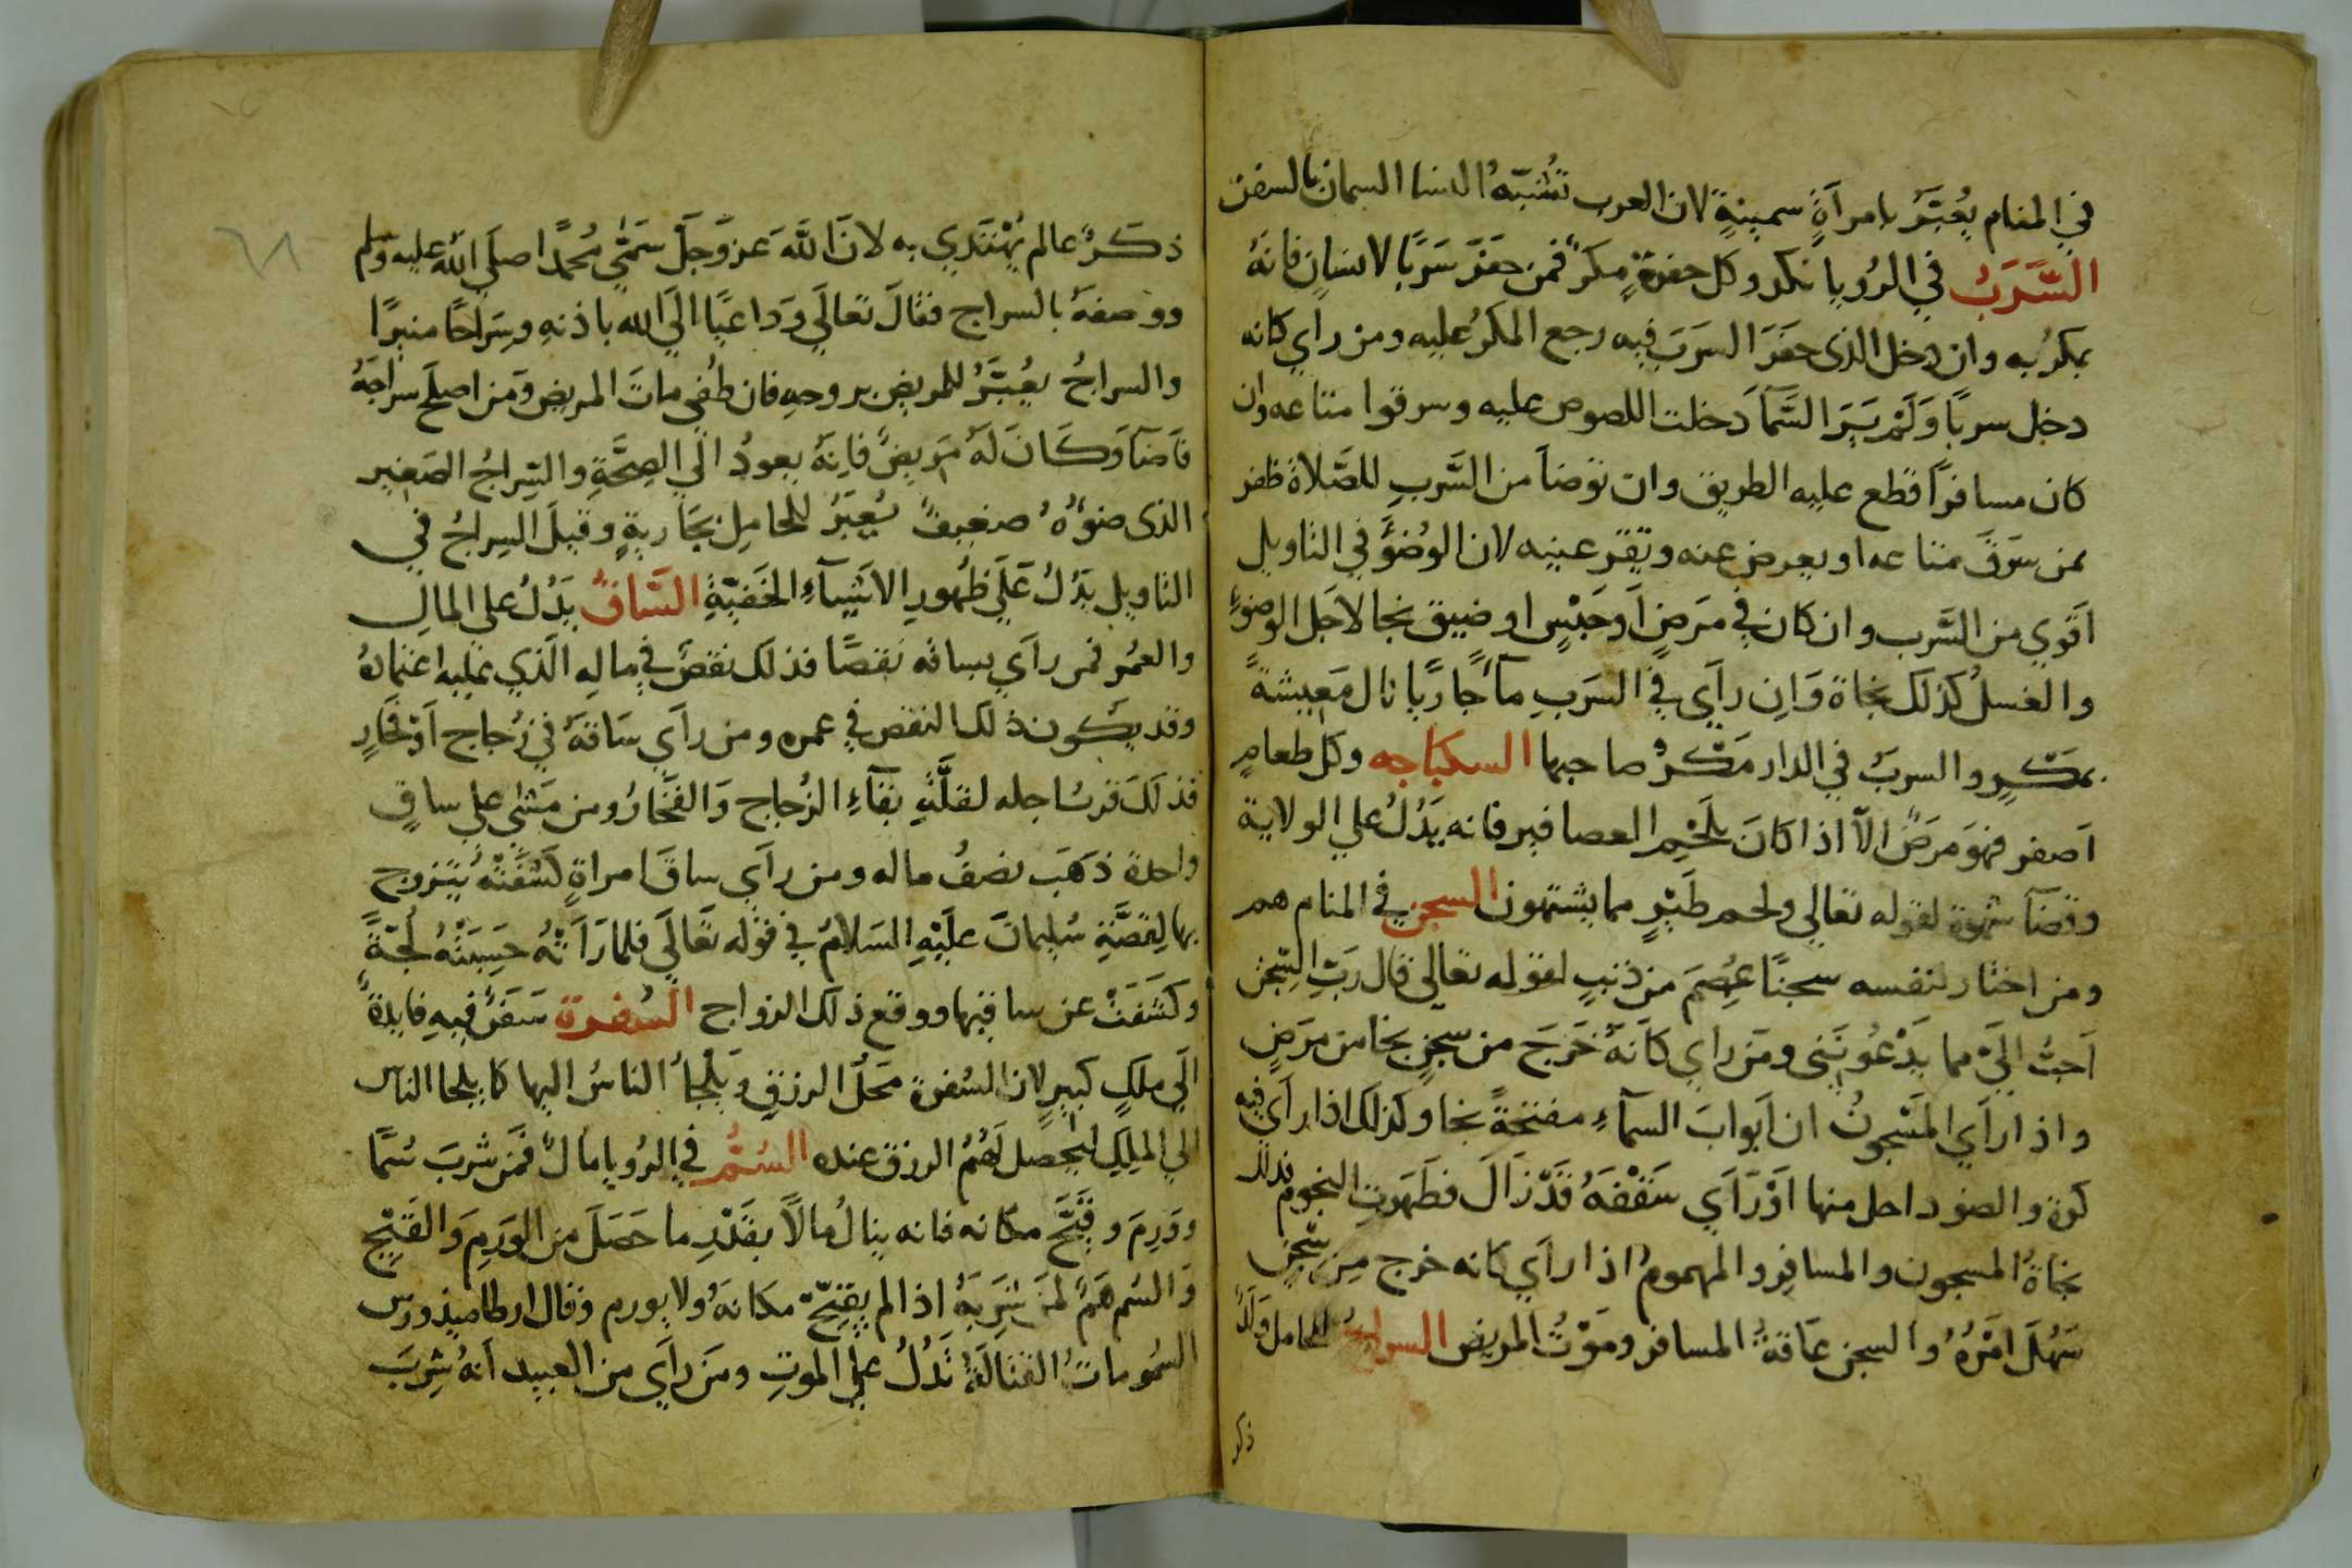 في المنام يُعبَّرُ بامرآةٍ سمينةٍ لان العرب تُشبّهُ النسا السمان بالسفن
السَّرَبُ في الرُويا نكد وكل حفرةٍ مكرٌ فمن حفَرَ سَرَبًا لانسانٍ فانهُ
يمكرُ به وان دخل الذى حفَرَ السرَبَ فيه رجع المكرُ عليه ومن راي كانه
دخل سربًا وَلَمْ يَرَ السَّمآ دَخلت اللصوص عليه وسرقوا متاعه وان
كان مسافرًا قطع عليه الطريق وان توضأ من السَّربِ للصَّلاة ظفر
بمن سَرقَ متاعه او يعوض عنه وتقر عينه لان الوُضؤَ في التاويل
اقوي من السَّرب وان كان في مَرضٍ اَو حَبْسٍ او ضيق نجا لاجَل الوضوءِ
والغسلُ كذلك نجاة وَان رآي في السَرَبِ مآءً جاريًا نال مَعيشةً
بمكرٍ والسربُ في الدار مَكرُ صاحبها السكباجه وكل طعامٍ
اَصفر فهوَ مَرَضٌ الآّ اذا كانَ بلَحْمِ العصافير فانه يَدُلُ علي الولاية
وقضآ شهوة لقوله تعالي ولحم طَيْرٍ مما يشتهون السجن في المنام هم
ومن اختار لنفسه سجنًا عُصِمَ من ذنبٍ لقوله تعالي قال رَبِّ السِّجن
اَحبُّ اليَّ مما يَدْعُونَني ومَن راي كاَنهُ خَرَجَ من سجنٍ نجا من مرَضٍ
واذا رآي المَسْجونُ ان اَبوابَ السمآءِ مفتحةً نجا وكذلك اذا رآي فيه
كوة والضو داخل منها اَوْ رَآي سَقْفَهُ قَدْ زَالَ فظَهَرتِ النجوم فذلك
نجاةُ المسجون والمسافِر والمهموم اذا رآي كانه خرج مِن سجنٍ
سَهُلَ امَرُهُ والسجن عاقةُ المسافر ومَوْتُ المريض السراجُ للحامل وَلَدٌ
ذكر
٦٨
ذكَرٌ عالم يُهْتَدي به لانَ اللّهَ عَزوَجَلَ سَمّي مُحمدًا صلي اللّه عليه وسلم
ووصفهُ بالسراج فقالَ تعَالَي وَداعيًا الَي اللّه باذنهِ وسِرَاجًا منيرًا
والسراجُ يعُبَّرُ للمريض بروحهِ فان طُفي ماتَ المريض وَمن اصلحَ سراجَهُ
فاَضَآ وكَانَ لهُ مَريضٌ فاِنهُ يعودُ الَي الصِحَّةِ والسِراجُ الصَغير
الذى ضؤُهُ ضعيفٌ يُعَبّرُ للحامِل بجَاريةٍ وقيلَ السِراجُ في
التاويل يَدُلُ عَلَي ظُهورِ الاشيآءِ الخَفيّةِ السَّاقُ يَدُلُ علي المالِ
والعمُر فمن رآي بساقه نقصًا فذلك نقصٌ في مالهِ الّذي عليه اعتمادُه
وقد يكون ذلك النقص في عمره ومن رآي سَاقهُ في زُجاج اَوْ فخَارٍ
فذلكَ قرب اجله لقلّةِ بقآءِ الزُجاج وَالفخّارُ ومن مَشي علي ساقٍ
واحدة ذهَبَ نصفُ ماله ومن رآي ساقَ امراةٍ كشَفَتْهُ يتزوج
بها لِقصَّةِ سُليمانَ علَيْهِ السَلامُ في قوْله تعَالَي فلما رَاَتْهُ حَسِبَتْهُ لُجّةً
وكَشَفَتْ عن ساقيها ووقع ذلك الزواج السُفرة سَفَرٌ فيهِ فايدةٌ
الَي ملكٍ كبيرٍ لان السُفرة محَلُ الرزقِ ويَلْجأُ الناسُ اليها كما يلجا الناس
الي الملِكِ ليحصل لَهُمُ الرزق عنده السُمُّ في الرُويا مالٌ فَمَن شربَ سُمًّا
ووَرِمَ وقَيَّحَ مكانه فانه ينالُ مالًا بقَدْرِ ما حَصَلَ من الوَرِم وَالقَيْحِ
وَالسُم هَمٌ لمَن شَرِبَهُ اذا لم يقيّح مكانهُ ولا يورم وقال ارطاميذورس
السُمومات القتالَةُ تَدُلُ علي الموتِ ومَن رآي من العبيد اَنهُ شِربَ